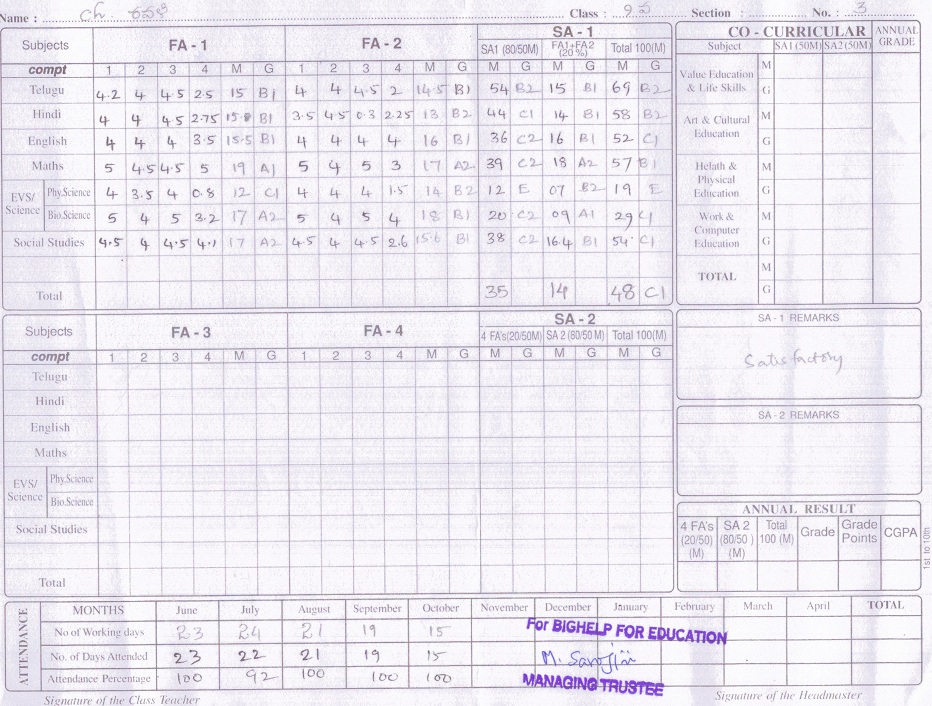 Name : Ch. Class : 9వ Section : No. : 3
Subjects FA - 1 FA - 2 SA - 1
SA1 (80/50M) FA1+FA2 (20%) Total 100(M)
compt 1 2 3 4 M G 1 2 3 4 M G M G M G M G
Telugu 4.2 4 4.5 2.5 15 B1 4 4 4.5 2 14.5 B1 54 B2 15 B1 69 B2
Hindi 4 4 4.5 2.75 B1 3.5 4.5 0.3 2.25 13 B2 44 C1 14 B1 58 B2
English 4 4 4 3.5 15.5 B1 4 4 4 4 16 B1 36 C2 16 B1 52 C1
Maths 5 4.5 4.5 5 19 A1 5 4 5 3 17 A2 39 C2 18 A2 57 B1
EVS/ Science Phy.Science 4 3.5 4 0.8 12 C1 4 4 4 1.5 14 B2 12 E 07 B2 19 E
Bio.Science 5 4 5 3.2 17 A2 5 4 5 4 18 B1 20 C2 09 A1 29 C1
Social Studies 4.5 4 4.5 4.1 17 A2 4.5 4 4.5 2.6 15.6 B1 38 C2 16.4 B1 54 C1
Total 35 14 48 C1
CO - CURRICULAR ANNUAL GRADE
Subject SA1 (50M) SA2 (50M)
Value Education & Life Skills M G
Art & Cultural Education M G
Helath & Physical Education M G
Work & Computer Education M G
TOTAL M G
Subjects FA - 3 FA - 4 SA - 2
4 FA's(20/50M) SA 2 (80/50 M) Total 100(M)
compt 1 2 3 4 M G 1 2 3 4 M G M G M G M G
Telugu
Hindi
English
Maths
EVS/ Science Phy.Science
Bio.Science
Social Studies
Total
SA - 1 REMARKS
Satisfactory
SA - 2 REMARKS
ANNUAL RESULT
4 FA's (20/50) (M) SA 2 (80/50 ) (M) Total 100 (M) Grade Grade Points CGPA
1st to 10th
ATTENDANCE
MONTHS June July August September October November December January February March April TOTAL
No of Working days 23 24 21 19 15
No. of Days Attended 23 22 21 19 15
Attendance Percentage 100 92 100 100 100
For BIGHELP FOR EDUCATION
M. Sarojini
MANAGING TRUSTEE
Signature of the Class Teacher Signature of the Headmaster